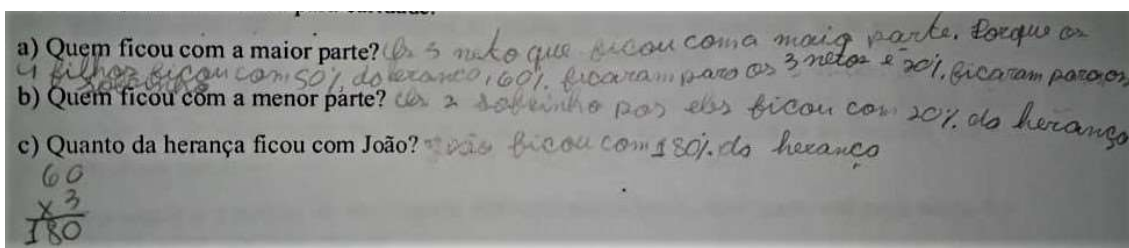 a) Quem ficou com a maior parte? Os 3 neto que ficou com a maig parte. Porque os
4 filhos ficou com 50% da eranco, 60% ficaram para os 3 netos e 20% ficaram para os
b) Quem ficou com a menor parte? Os 2 sobrinho pos eles ficou com 20% da herança
c) Quanto da herança ficou com João? João ficou com 180% da herança
60
x 3
180